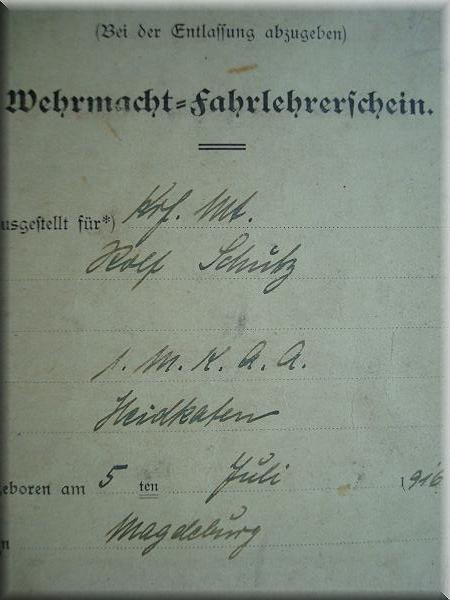 (Bei der Entlassung abzugeben)
Wehrmacht=Fahrlehrerschein.
usgestellt für*) Krf. Mt.
Rolf Schütz
1. M. K. A. A.
Heidkaten
eboren am 5 ten Juli 1916
n Magdeburg